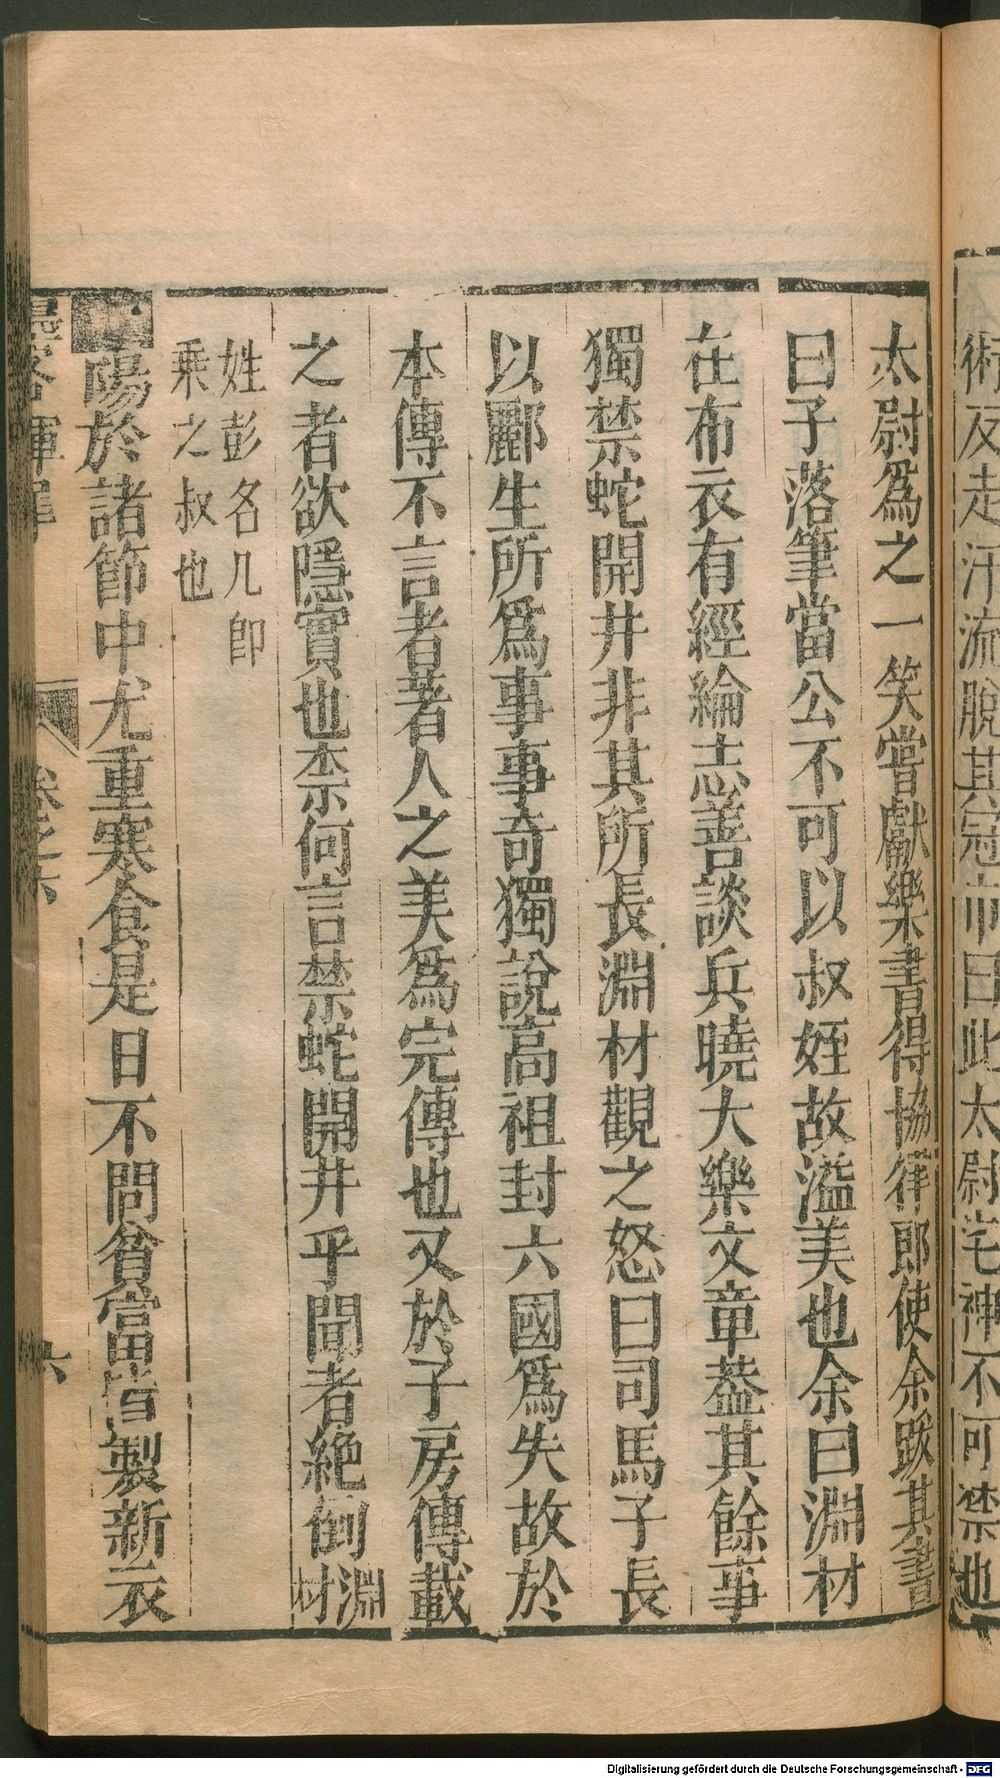 術反走汗流脫其冠巾曰此太尉宅神不可禁也
太尉爲之一笑嘗獻樂書得協律郎使余跋其書
曰子落筆當公不可以叔姪故溢美也余曰淵材
在布衣有經綸志善談兵曉大樂文章葢其餘事
獨禁蛇開井非其所長淵材觀之怒曰司馬子長
以酈生所爲事事奇獨說高祖封六國爲失故於
本傳不言者著人之美爲完傳也又於子房傳載
之者欲隱實也柰何言禁蛇開井乎聞者絶倒淵材
姓彭名几卽
乘之叔也
陽於諸節中尤重寒食是日不問貧富皆製新衣
墨客揮犀 卷之六 六
Digitalisierung gefördert durch die Deutsche Forschungsgemeinschaft - DFG